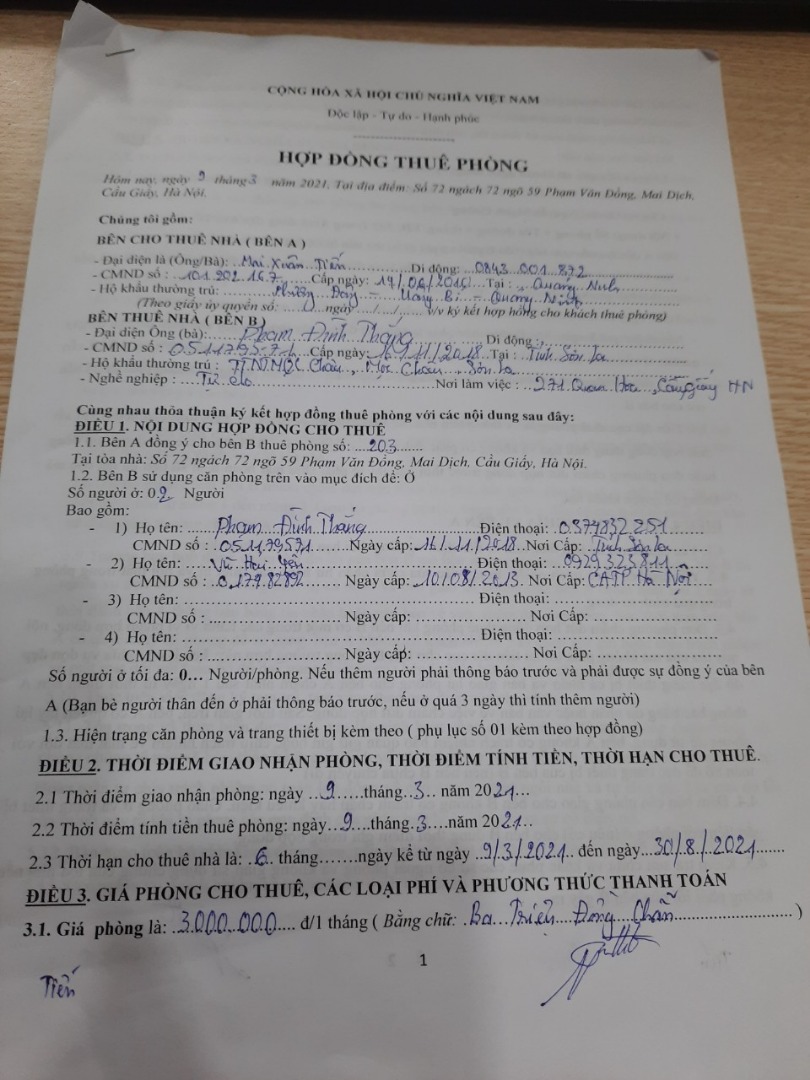 CỘNG HÒA XÃ HỘI CHỦ NGHĨA VIỆT NAM
Độc lập - Tự do - Hạnh phúc
HỢP ĐỒNG THUÊ PHÒNG
Hôm nay, ngày 9 tháng 3 năm 2021, Tại địa điểm: Số 72 ngách 72 ngõ 59 Phạm Văn Đồng, Mai Dịch,
Cầu Giấy, Hà Nội.
Chúng tôi gồm:
BÊN CHO THUÊ NHÀ ( BÊN A )
- Đại diện là (Ông/Bà): ..Mai Xuân Tiến..............Di động: ..0843.001.872
- CMND số : ..101.202.167.........Cấp ngày: 14/06/2016 Tại : ..Quảng Ninh
- Hộ khẩu thường trú: ........Phương Đông - Uông Bí - Quảng Ninh
(Theo giấy ủy quyền số: ......ngày..../..../...... v/v ký kết hợp đồng cho khách thuê phòng)
BÊN THUÊ NHÀ ( BÊN B )
- Đại diện Ông (bà):........Phạm Đình Thắng............ Di động :
- CMND số : 051179571....Cấp ngày: 16/11/2018..Tại : Tỉnh Sơn La
- Hộ khẩu thường trú : TTNT Mộc Châu, Mộc Châu, Sơn La
- Nghề nghiệp : ...Tự do..............................Nơi làm việc : ..271 Quan Hoa, Cầu Giấy HN
Cùng nhau thỏa thuận ký kết hợp đồng thuê phòng với các nội dung sau đây:
ĐIỀU 1. NỘI DUNG HỢP ĐỒNG CHO THUÊ
1.1. Bên A đồng ý cho bên B thuê phòng số: ...203........
Tại tòa nhà: Số 72 ngách 72 ngõ 59 Phạm Văn Đồng, Mai Dịch, Cầu Giấy, Hà Nội.
1.2. Bên B sử dụng căn phòng trên vào mục đích để: Ở
Số người ở: 02 Người
Bao gồm:
- 1) Họ tên: ......Phạm Đình Thắng......................Điện thoại: .0374832251
CMND số : .051179571.......Ngày cấp:16/11/2018..Nơi Cấp: Tỉnh Sơn La
- 2) Họ tên: ....Vũ Hải Yến.............................. Điện thoại: ..0929323811
CMND số : ..017982892........ Ngày cấp: .10/08/2013. Nơi Cấp: CATP Hà Nội
- 3) Họ tên: ................................................ Điện thoại: .............................
CMND số : ........................ Ngày cấp: .................... Nơi Cấp: .....................
- 4) Họ tên: ................................................ Điện thoại: .............................
CMND số : ........................ Ngày cấp: .................... Nơi Cấp: .....................
Số người ở tối đa: 0... Người/phòng. Nếu thêm người phải thông báo trước và phải được sự đồng ý của bên
A (Bạn bè người thân đến ở phải thông báo trước, nếu ở quá 3 ngày thì tính thêm người)
1.3. Hiện trạng căn phòng và trang thiết bị kèm theo ( phụ lục số 01 kèm theo hợp đồng)
ĐIỀU 2. THỜI ĐIỂM GIAO NHẬN PHÒNG, THỜI ĐIỂM TÍNH TIỀN, THỜI HẠN CHO THUÊ.
2.1 Thời điểm giao nhận phòng: ngày ..9.....tháng..3.. năm 2021...
2.2 Thời điểm tính tiền thuê phòng: ngày..9....tháng.3....năm 2021..
2.3 Thời hạn cho thuê nhà là: .6. tháng.......ngày kể từ ngày ..9/3/2021.. đến ngày...30/8/2021.......
ĐIỀU 3. GIÁ PHÒNG CHO THUÊ, CÁC LOẠI PHÍ VÀ PHƯƠNG THỨC THANH TOÁN
3.1. Giá phòng là: .3.000.000.... đ/1 tháng ( Bằng chữ: .Ba Triệu Đồng Chẵn........................ )
1
Tiến